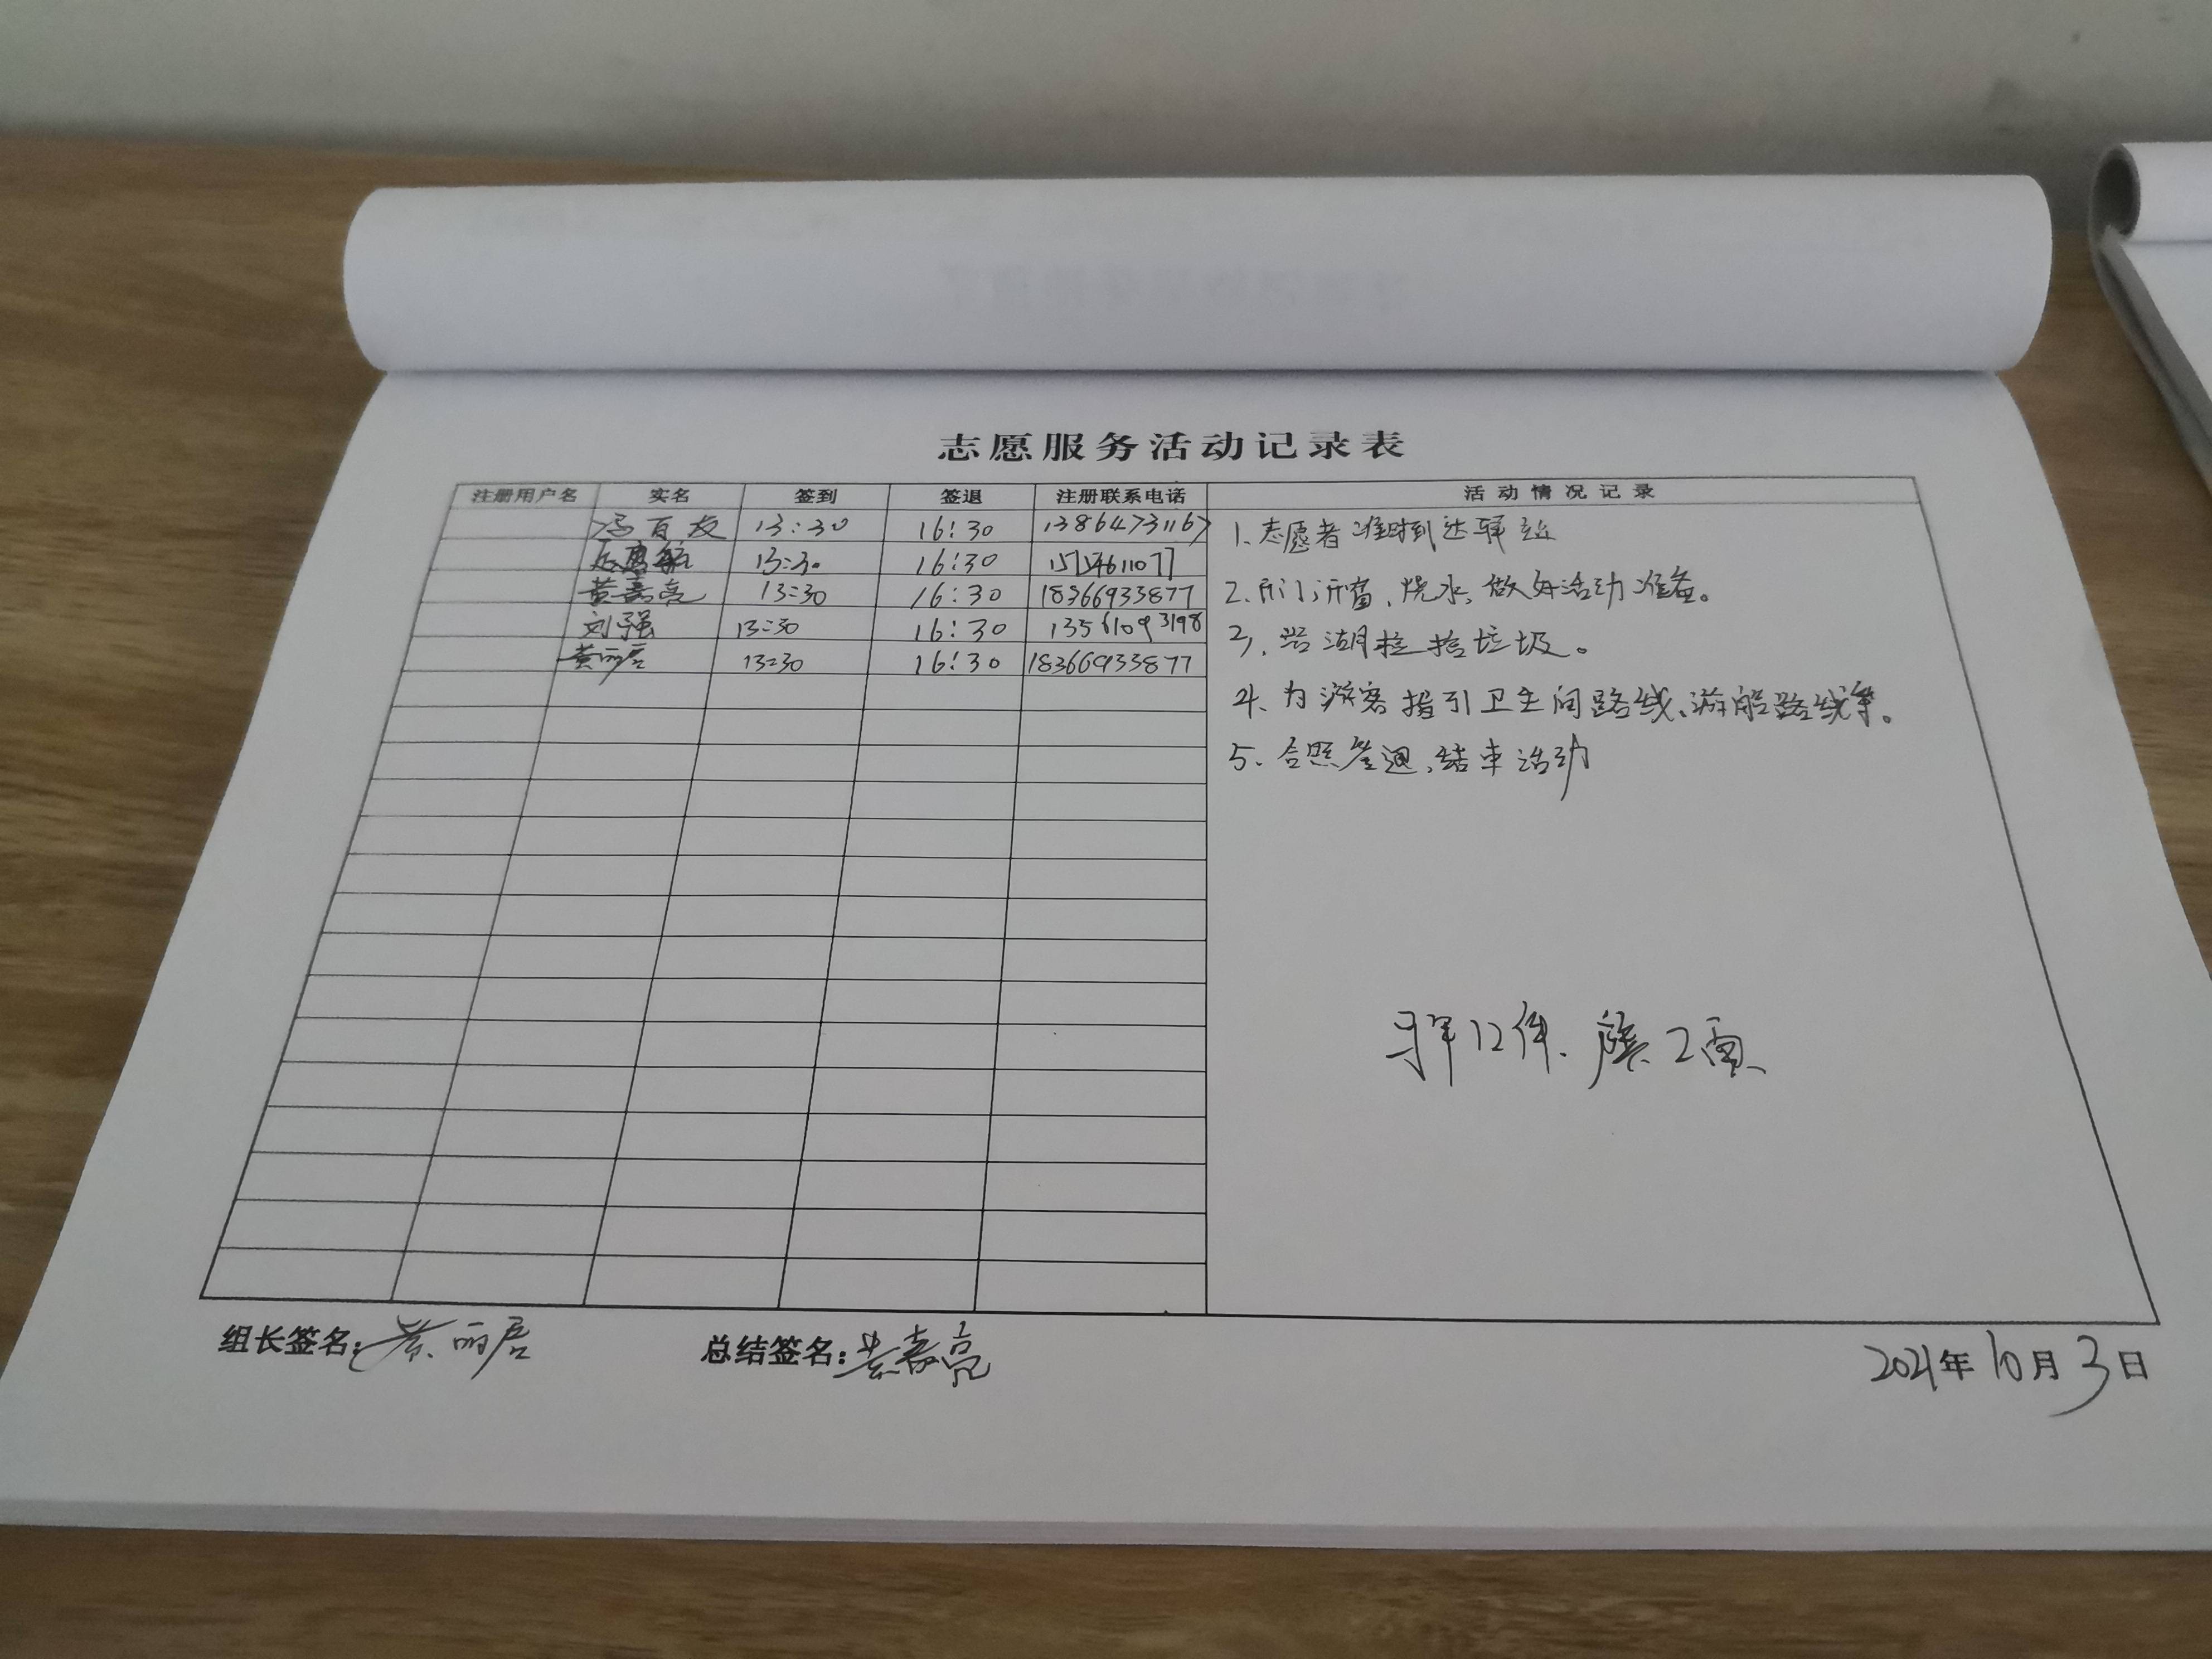 志愿服务活动记录表
注册用户名 实名 签到 签退 注册联系电话 活动情况记录
冯百友 13:30 16:30 13864731167
13:30 16:30 15154611077
黄嘉亮 13:30 16:30 18366933877
刘强 13:30 16:30 13561093198
黄丽君 13:30 16:30 18366933877
1、志愿者准时到达驿站
2、开门,开窗、烧水,做好活动准备。
3、沿湖捡拾垃圾。
4、为游客指引卫生间路线、游船路线等。
5、合照签退,结束活动
马甲12件、旗2面
组长签名:黄丽君 总结签名:黄嘉亮 2021年10月3日